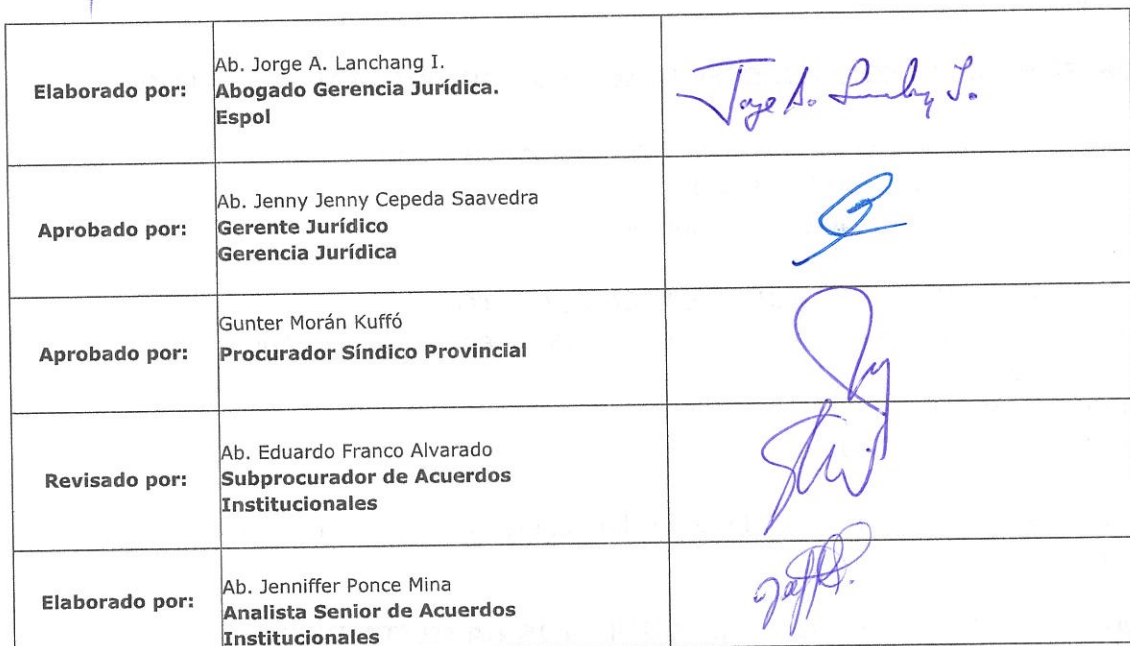 Elaborado por:
Ab. Jorge A. Lanchang I.
Abogado Gerencia Jurídica.
Espol
Jorge A.
Aprobado por:
Ab. Jenny Jenny Cepeda Saavedra
Gerente Jurídico
Gerencia Jurídica
Aprobado por:
Gunter Morán Kuffó
Procurador Síndico Provincial
Revisado por:
Ab. Eduardo Franco Alvarado
Subprocurador de Acuerdos
Institucionales
Elaborado por:
Ab. Jenniffer Ponce Mina
Analista Senior de Acuerdos
Institucionales